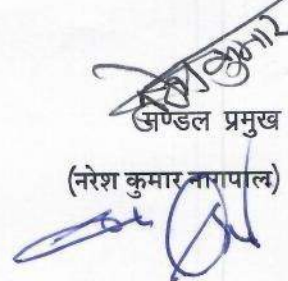 कुमार
मण्डल प्रमुख
(नरेश कुमार नागपाल)